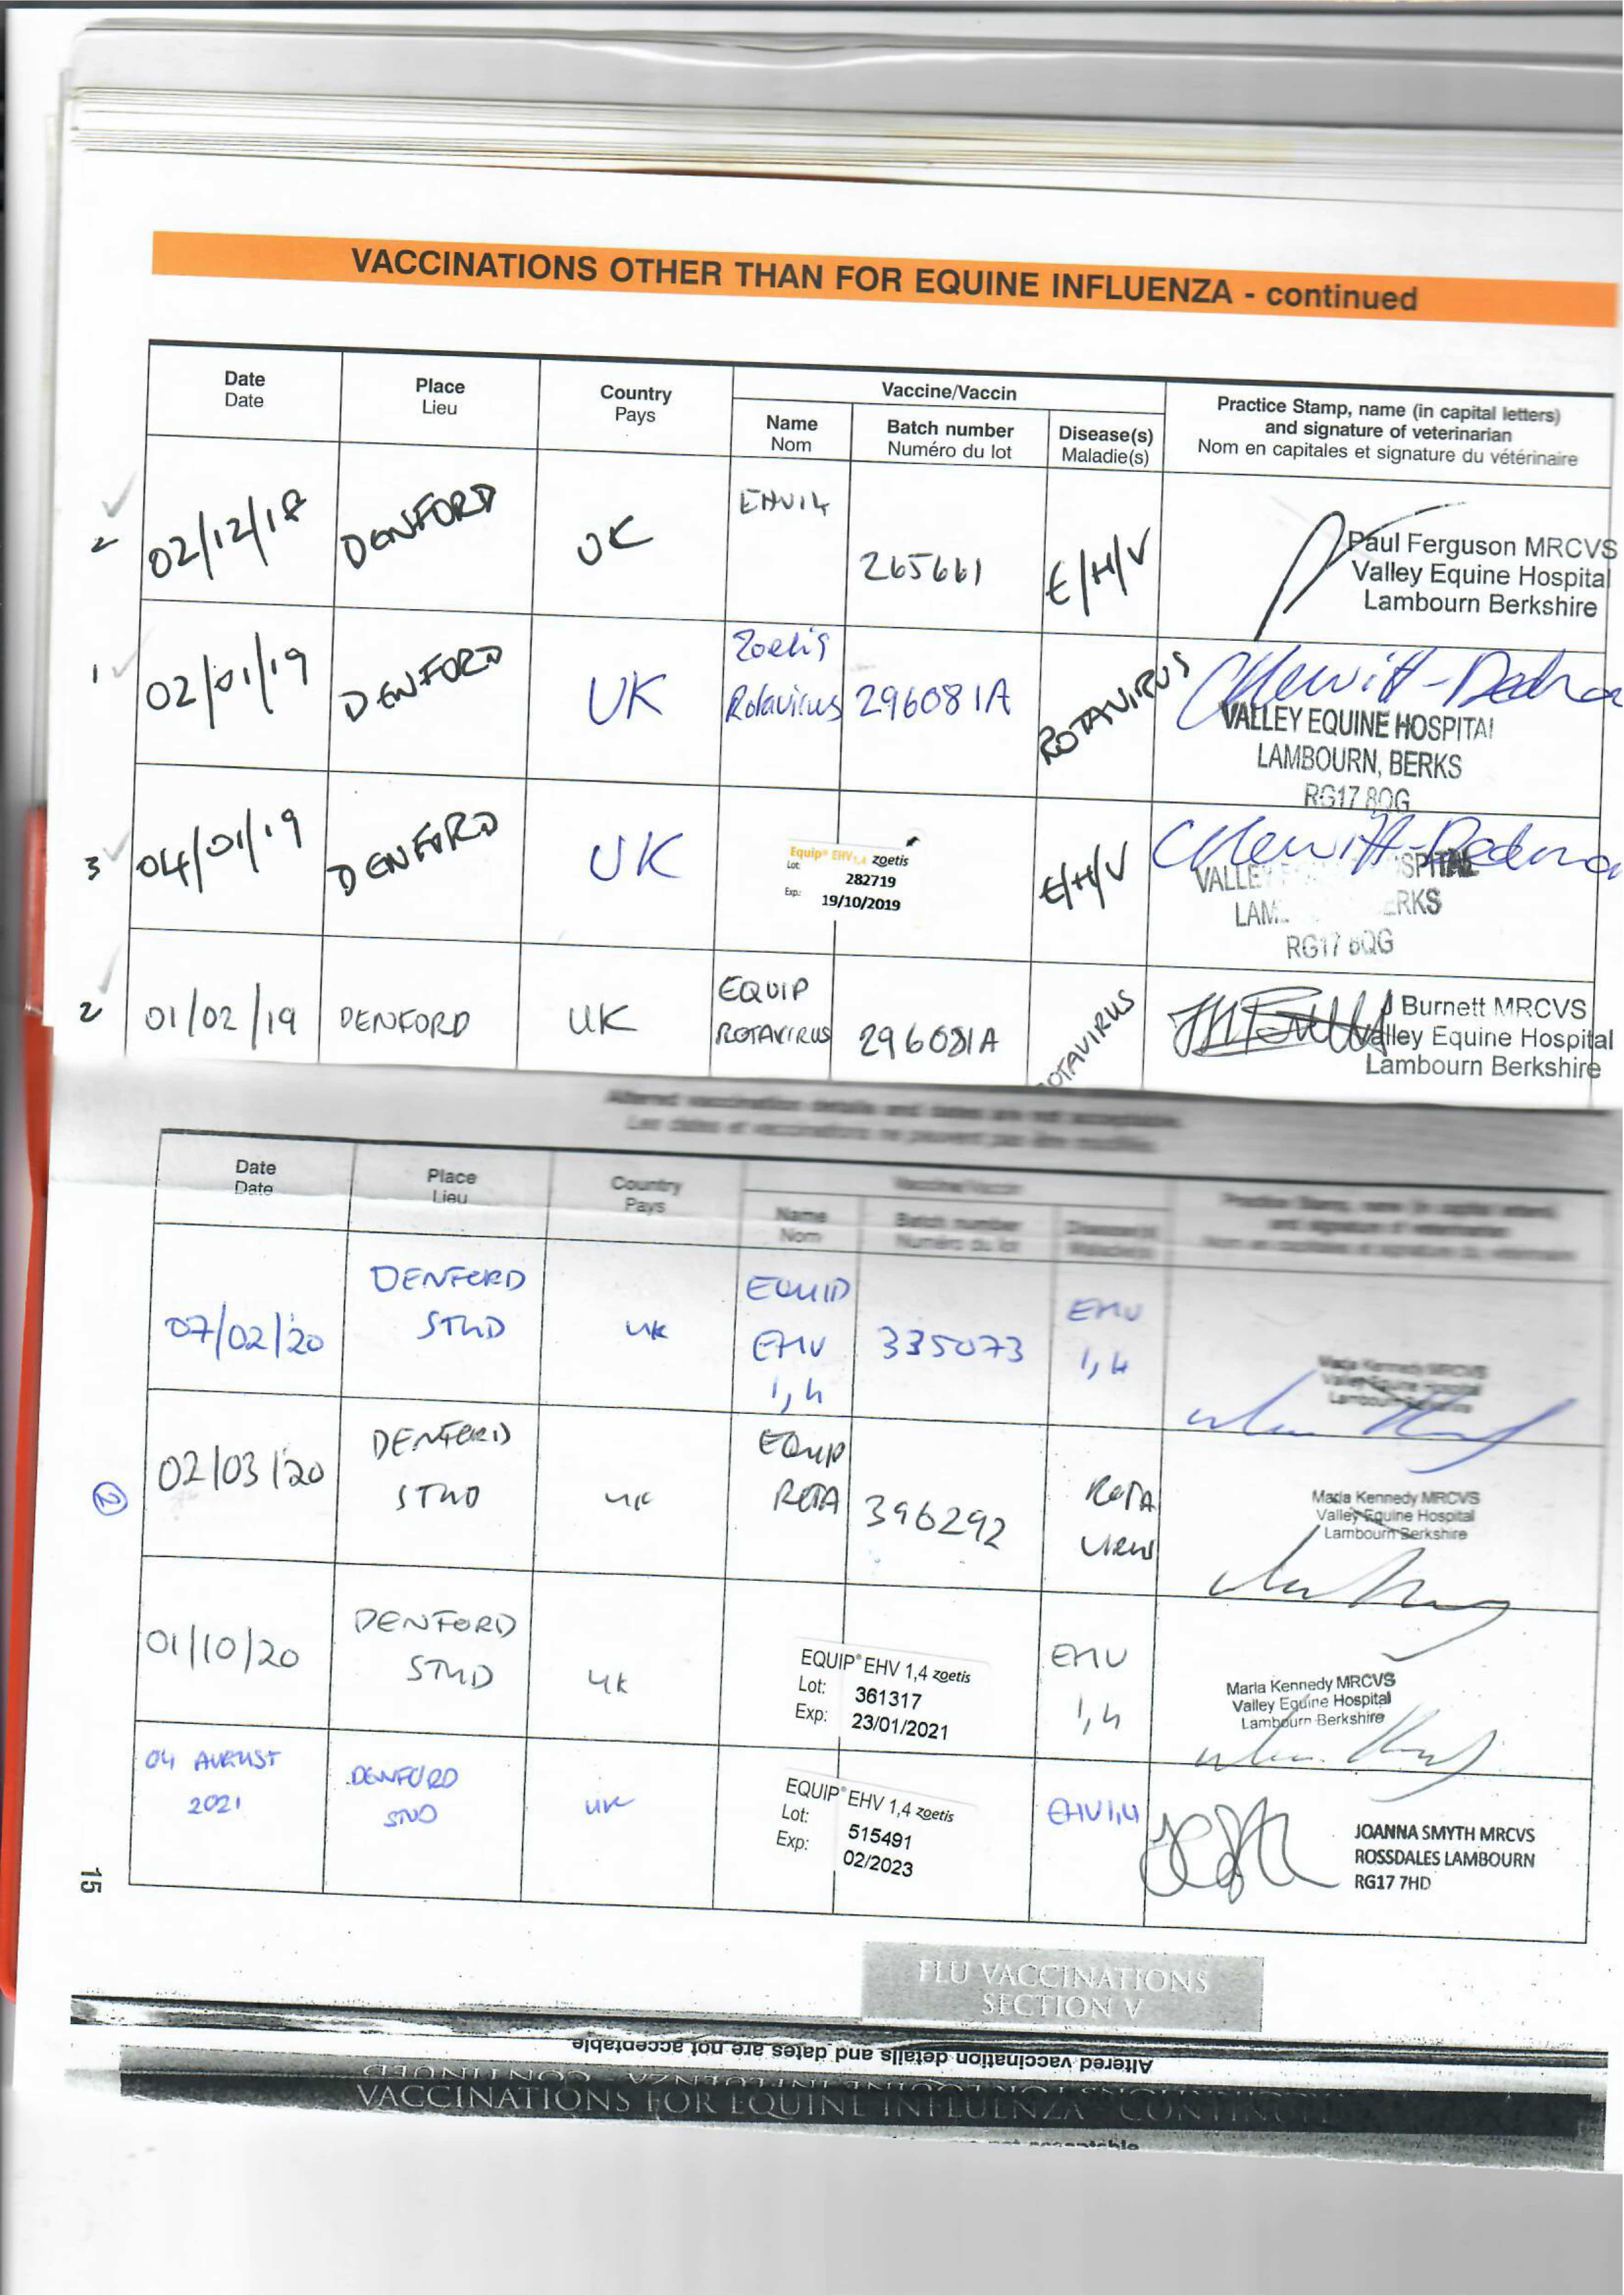 VACCINATIONS OTHER THAN FOR EQUINE INFLUENZA - continued
Date
Date
Place
Lieu
Country
Pays
Vaccine/Vaccin
Name
Nom
Batch number
Numéro du lot
Disease(s)
Maladie(s)
Practice Stamp, name (in capital letters)
and signature of veterinarian
Nom en capitales et signature du vétérinaire
2 02/12/18 DENFORD UK EHV14 265661 E/H/V
Paul Ferguson MRCVS
Valley Equine Hospital
Lambourn Berkshire
1 02/01/19 DENFORD UK Zoetis
Rotavirus 296081A ROTAVIRUS
VALLEY EQUINE HOSPITAL
LAMBOURN, BERKS
RG17 8QG
3 04/01/19 DENFORD UK
Equip® EHV 1,4 zoetis
Lot: 282719
Exp: 19/10/2019
E/H/V
VALLEY SPITAL
LAM ERKS
RG17 8QG
2 01/02/19 DENFORD UK EQUIP
ROTAVIRUS 296081A ROTAVIRUS
J Burnett MRCVS
Valley Equine Hospital
Lambourn Berkshire
Altered vaccination details and dates are not acceptable.
Les dates et vaccinations ne peuvent pas être modifiés.
Date
Date
Place
Lieu
Country
Pays
Vaccine/Vaccin
Name
Nom
Batch number
Numéro du lot
Disease(s)
Maladie(s)
07/02/20 DENFORD
STUD UK EQUIP
EHV
1,4 335073 EHV
1,4
Maria Kennedy MRCVS
Valley Equine Hospital
Lambourn Berkshire
2 02/03/20 DENFORD
STUD UK EQUIP
ROTA 396292 ROTA
VIRUS
Maria Kennedy MRCVS
Valley Equine Hospital
Lambourn Berkshire
01/10/20 DENFORD
STUD UK
EQUIP® EHV 1,4 zoetis
Lot: 361317
Exp: 23/01/2021
EHV
1,4
Maria Kennedy MRCVS
Valley Equine Hospital
Lambourn Berkshire
04 AUGUST
2021 DENFORD
STUD UK
EQUIP® EHV 1,4 zoetis
Lot: 515491
Exp: 02/2023
EHV1,4
JOANNA SMYTH MRCVS
ROSSDALES LAMBOURN
RG17 7HD
15
FLU VACCINATIONS
SECTION V
Altered vaccination details and dates are not acceptable
VACCINATIONS FOR EQUINE INFLUENZA - CONTINUED